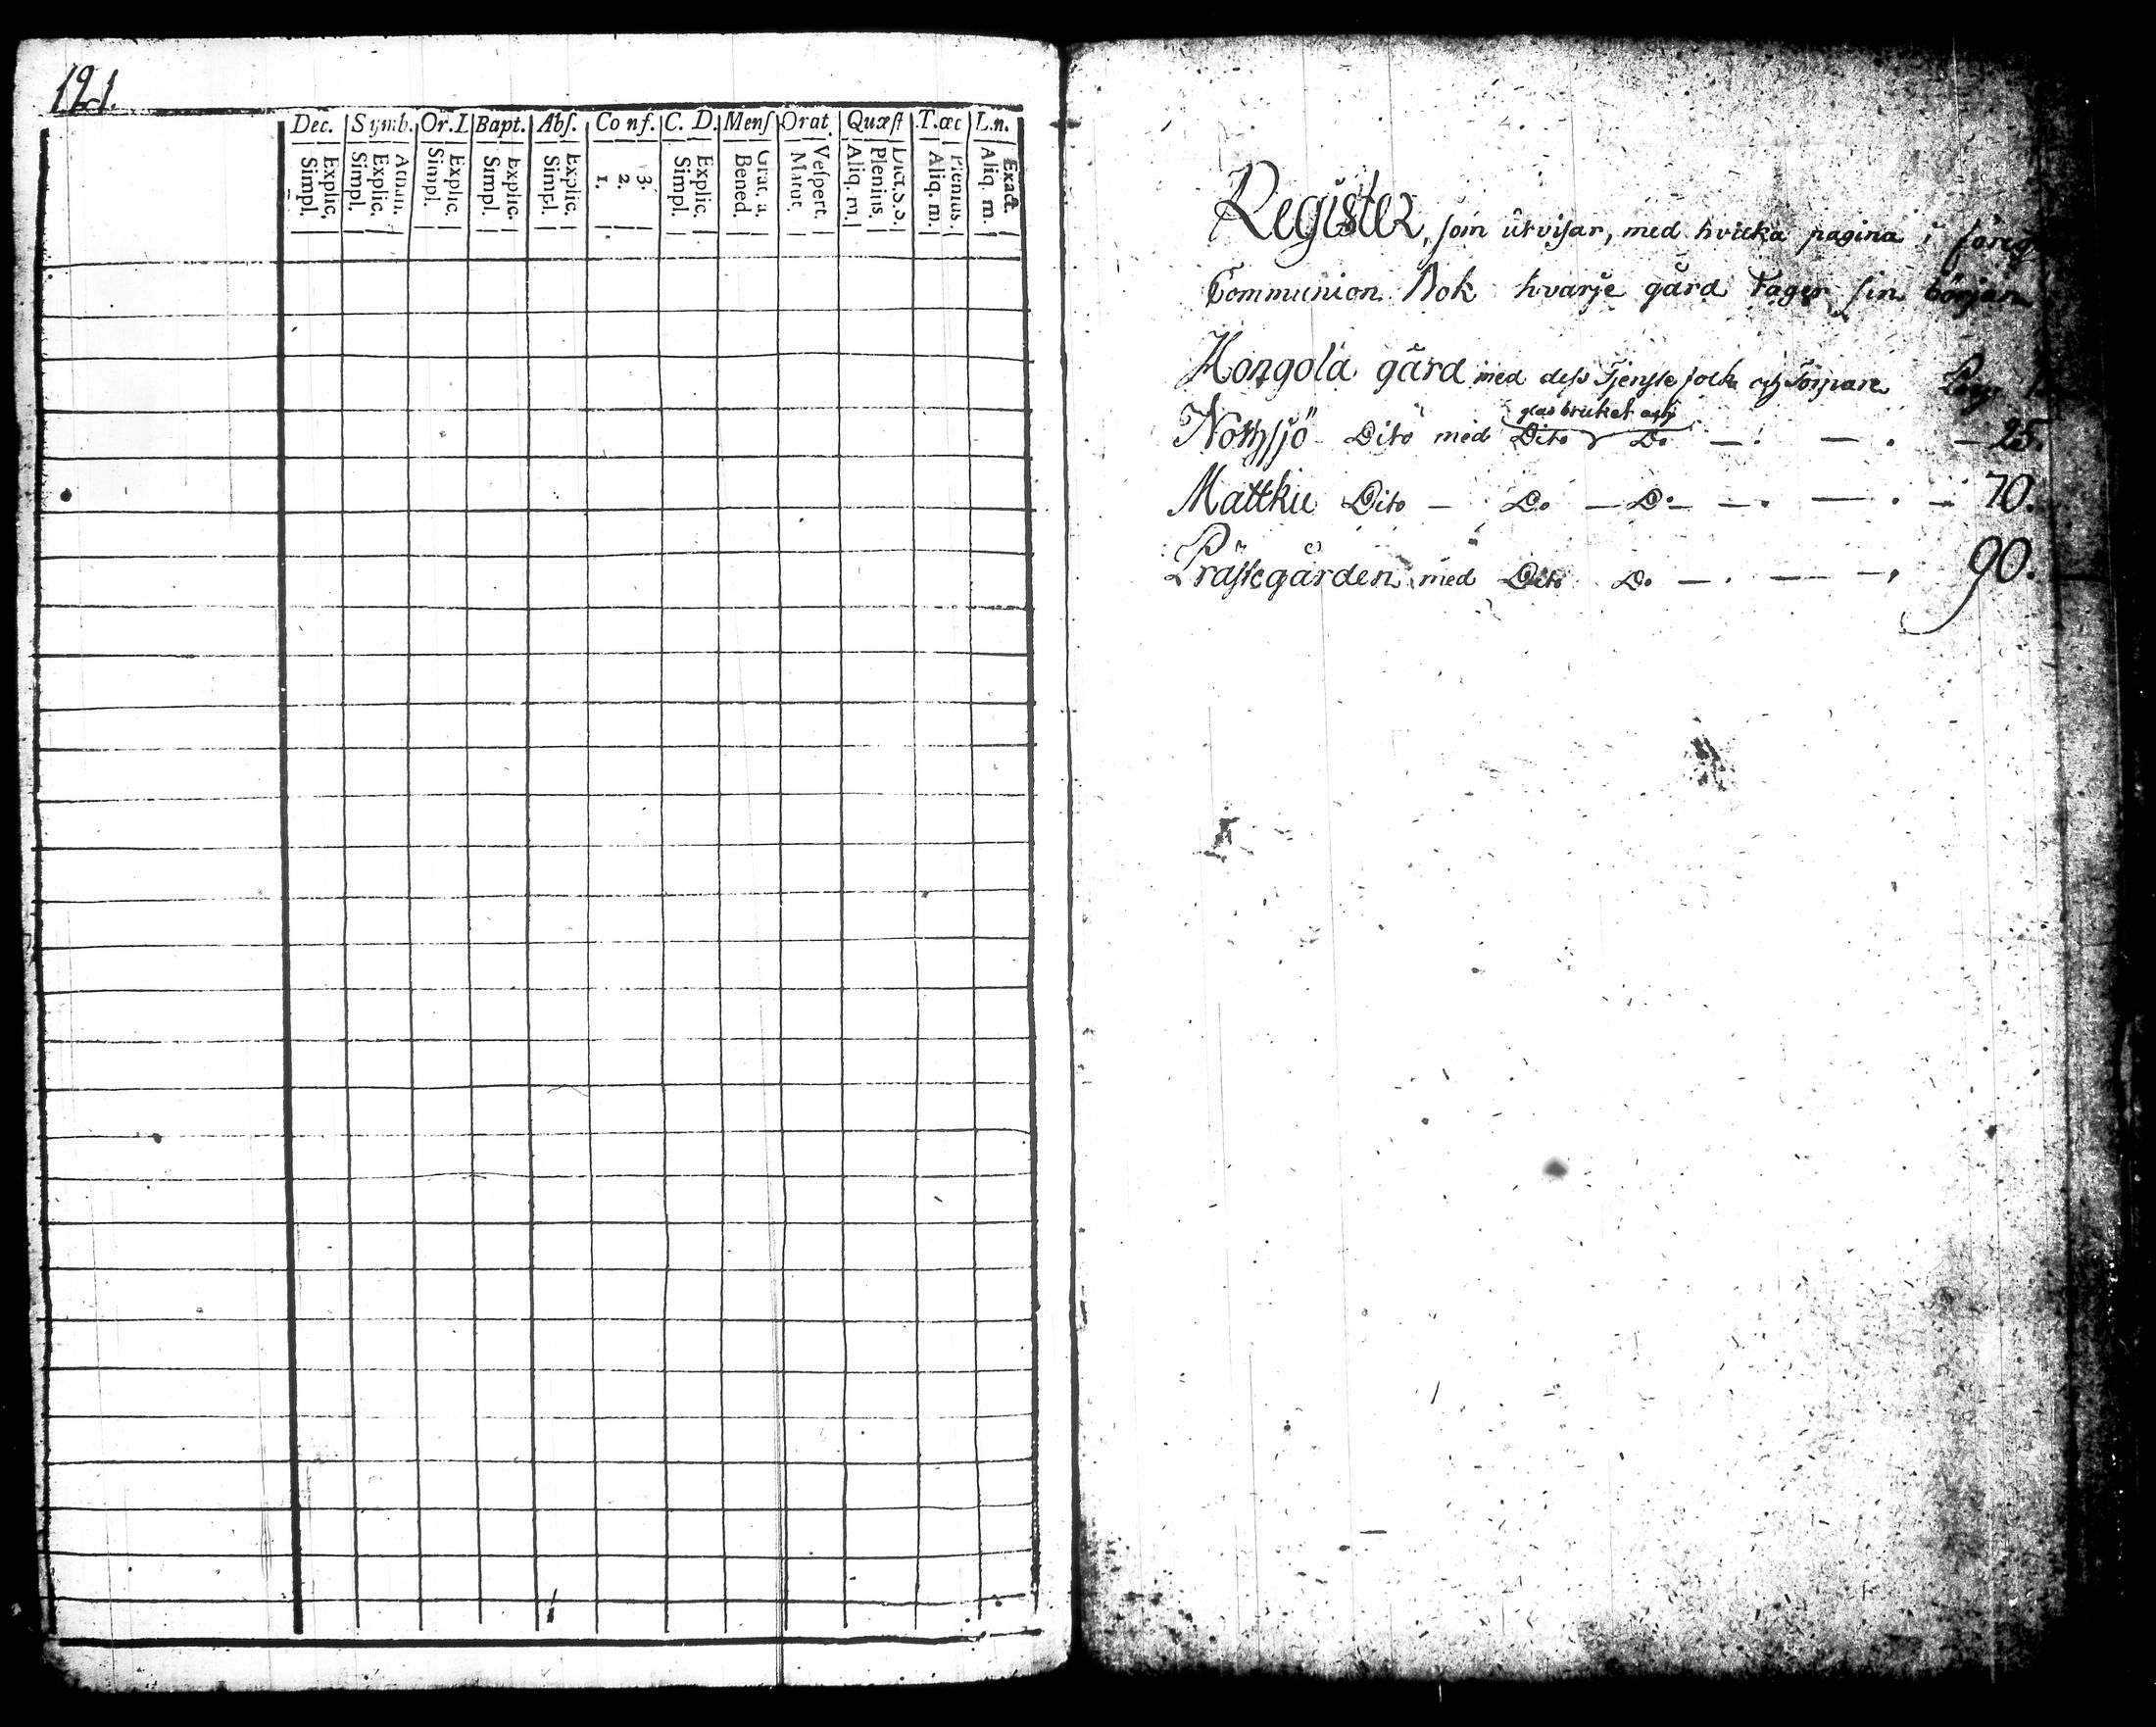 121.
Dec. Symb. Or. I Bapt. Abſ. Conf. C. D. Menſ Orat. Quæſt T. œc L. n.
Simpl. Explic. Simpl. Explic. Athan. Simpl. Explic. Simpl. Explic. Simpl. Explic. 1. 2. 3. Simpl. Explic. Bened. Grat. a. Matut. Veſpert. Aliq. m. Plenius Dict. S. S. Aliq. m. Plenius. Aliq. m. Exact.
Register, ſom utviſar, med hvicka pagina i föreg
Communion Bok hvarje gård tager ſin början
Kongola gård med deſs Tjenſte folk och Torpare Pag. 1.
glas bruket och
Notsjö Dito med Dito Do — . — . — 25.
Mattku Dito — Do — Do — — . — . — 70.
Präſtegården med Dito Do — . — — , 90.